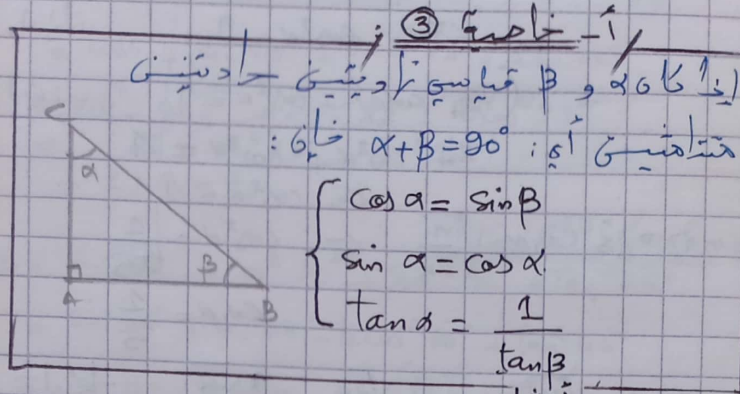 أ- خاصية ③:
إذا كان α و β قياسي زاويتين حادتين
متتامتين أي: α+β=90° فإن:
C
α
cos α = sin β
sin α = cos α
β
A
B
tan α = 1 / tan β